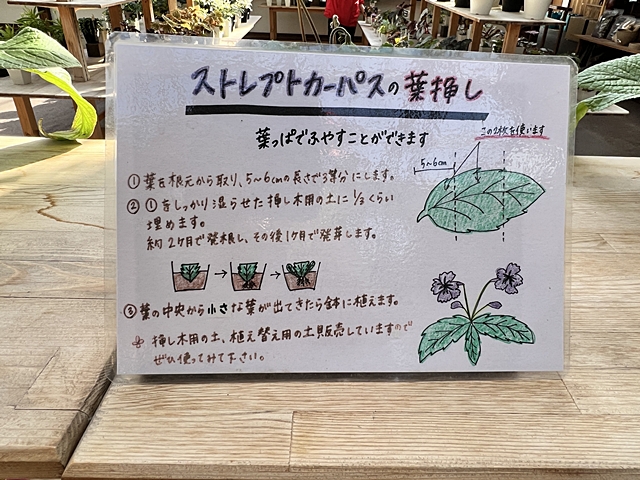 ストレプトカーパスの葉挿し
葉っぱでふやすことができます
この2枚を使います
5~6cm
①葉を根元から取り、5~6cmの長さで3等分にします。
②①をしっかり湿らせた挿し木用の土に1/3くらい
埋めます。
約2ヶ月で発根し、その後1ヶ月で発芽します。
③葉の中央から小さな葉が出てきたら鉢に植えます。
挿し木用の土、植え替え用の土販売していますので
ぜひ使ってみて下さい。